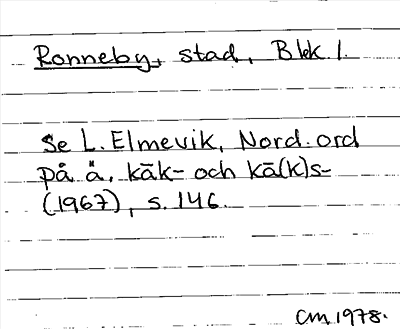 Ronneby, stad, Blek. l.
Se L. Elmevik, Nord. ord
på ä. kāk- och kā(k)s-
(1967), s. 146.
CM 1978.